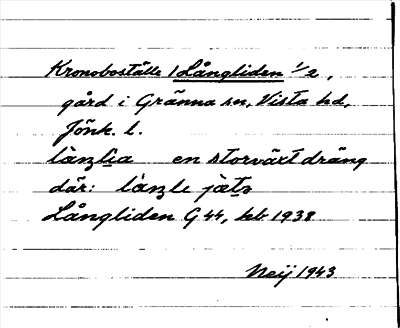 Kronoboställe 1 Långliden 1/2,
gård i Gränna sn, Vista hd,
Jönk. l.
en storväxt dräng
där:
Långliden G 44, kb 1938
Neij 1943